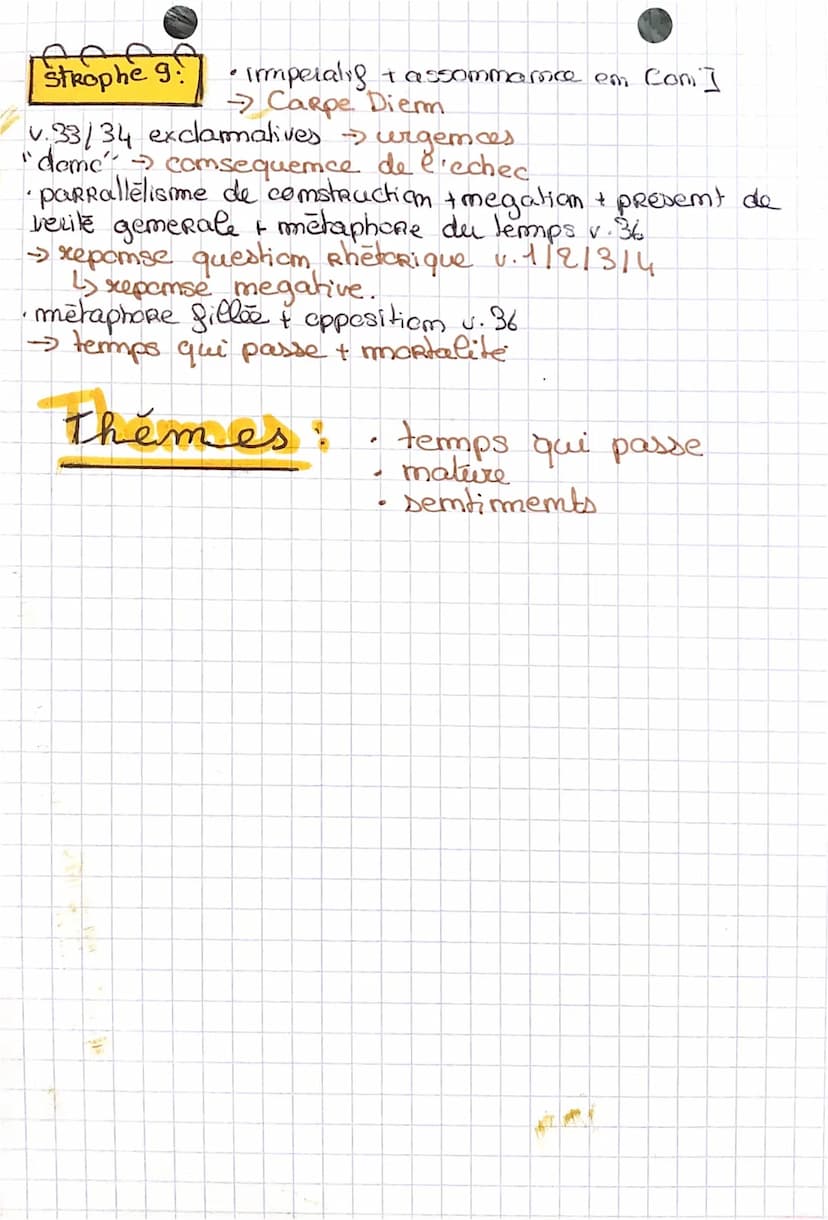 Strophe 9 :
• impératif + assonnance en [on]
→ Carpe Diem
v.33/34 exclamatives → urgences
"donc" → consequence de l'echec
• parrallélisme de construction + negation + present de
verité generale + métaphore du temps v.36
→ reponse question rhétorique v.1/2/3/4
↳ reponse negative.
• métaphore fillée + opposition v.36
→ temps qui passe + mortalité
Thémes :
• temps qui passe
• nature
• sentiments